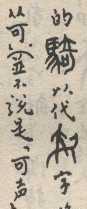 的騎以代字
从可(並不說是"可声